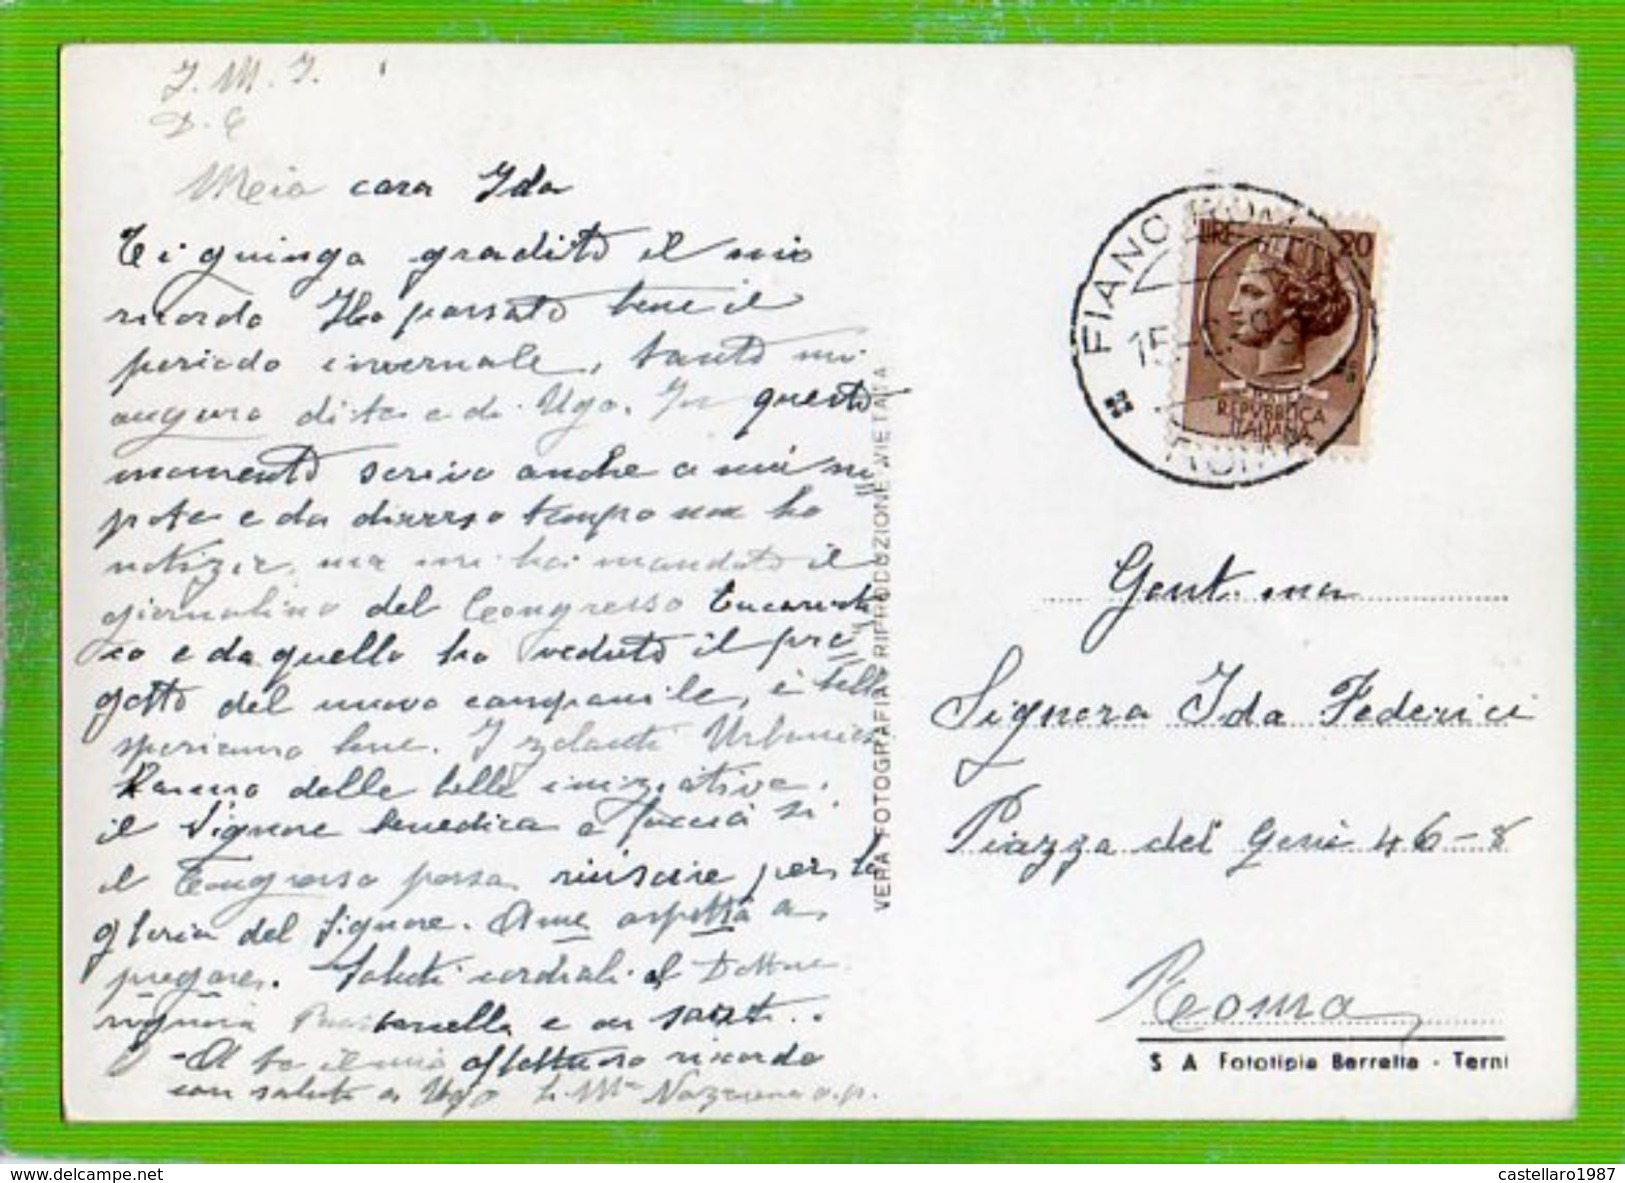 J. M. J.
D. G
Meia cara Ida
Ti giunga gradito il mio
ricordo Ho passato bene il
periodo invernale, tanto mi
auguro di te e di Ugo. In questo
momento scrivo anche a mia ni
pote e da diverso tempo non ho
notizie, ma mi hai mandato il
giornalino del Congresso Eucaristi
co e da quello ho veduto il pro
getto del nuovo campanile, è bello
speriamo bene. I zelanti
Fanno delle belle iniziative.
il Signore benedica e faccia si
il Congresso possa riuscire per la
gloria del Signore. A me aspetta a
pregare. Saluti cordiali al Dottore
signora e
- A te il mio affettuoso ricordo
con saluti a Ugo Ma Nazarena o.p.
VERA FOTOGRAFIA - RIPRODUZIONE VIETATA
FIANO ROMANO
15
ROMA
LIRE 20
REPVBBLICA
ITALIANA
Gent.ma
Signora Ida Federici
Piazza del Gesù 46-8
Roma
S A Fototipia Berretta - Terni
castellaro1987